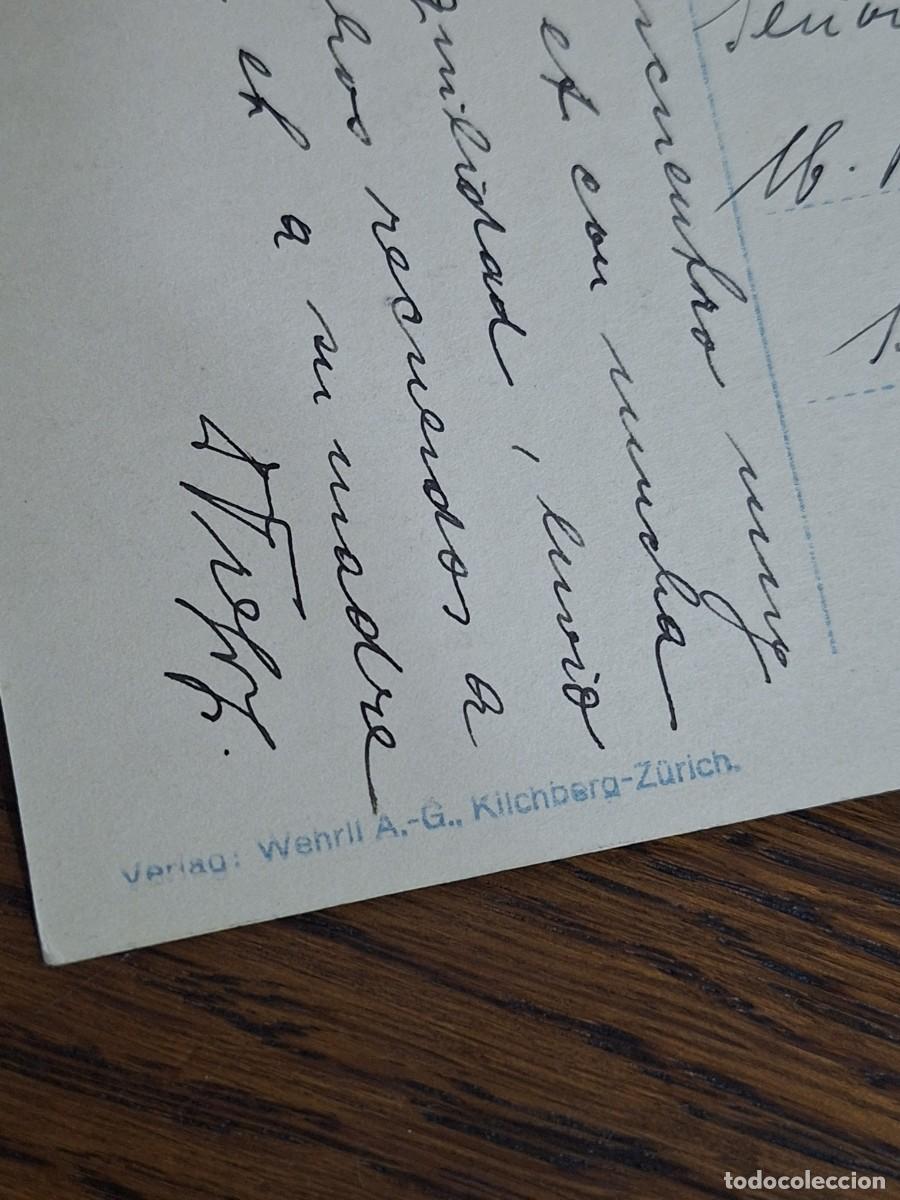 encuentro muy
et con mucha
quilidad, envio
chos recuerdos a
et a su madre
Verlag: Wehrli A.-G., Kilchberg-Zürich.
todocoleccion